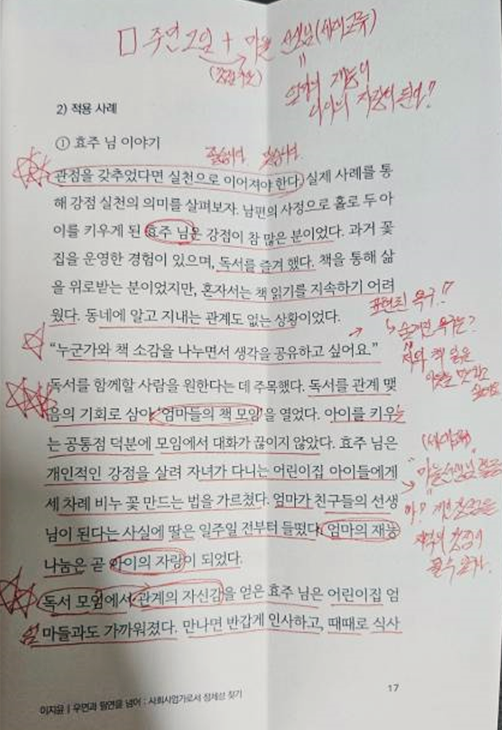 □ 주연 2일 + 마을 선생님(세대교류)
(강점)
엄마의 재능이
아이의 자랑이 된다?
2) 적용 사례
① 효주 님 이야기
관점을 갖추었다면 실천으로 이어져야 한다. 실제 사례를 통
해 강점 실천의 의미를 살펴보자. 남편의 사정으로 홀로 두 아
이를 키우게 된 효주 님은 강점이 참 많은 분이었다. 과거 꽃
집을 운영한 경험이 있으며, 독서를 즐겨 했다. 책을 통해 삶
을 위로받는 분이었지만, 혼자서는 책 읽기를 지속하기 어려
웠다. 동네에 알고 지내는 관계도 없는 상황이었다.
표현된 욕구!!
숨겨진 욕구는?
“누군가와 책 소감을 나누면서 생각을 공유하고 싶어요.”
독서를 함께할 사람을 원한다는 데 주목했다. 독서를 관계 맺
음의 기회로 삼아 ‘엄마들의 책 모임’을 열었다. 아이를 키우
는 공통점 덕분에 모임에서 대화가 끊이지 않았다. 효주 님은
개인적인 강점을 살려 자녀가 다니는 어린이집 아이들에게
세 차례 비누 꽃 만드는 법을 가르쳤다. 엄마가 친구들의 선생
님이 된다는 사실에 딸은 일주일 전부터 들떴다. 엄마의 재능
나눔은 곧 아이의 자랑이 되었다.
독서 모임에서 관계의 자신감을 얻은 효주 님은 어린이집 엄
마들과도 가까워졌다. 만나면 반갑게 인사하고, 때때로 식사
이지윤 | 우연과 필연을 넘어 : 사회사업가로서 정체성 찾기
17